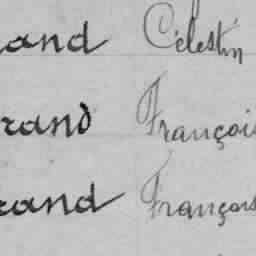 rand Célestin
rand François
rand François